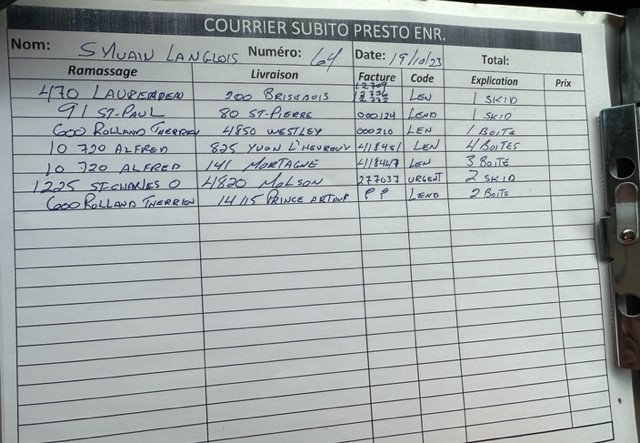 COURRIER SUBITO PRESTO ENR.
Nom: SYLVAIN LANGLOIS Numéro: 64 Date: 19/10/23 Total:
Ramassage Livraison Facture Code Explication Prix
470 200 LEN 1 SKID
91 ST-PAUL 80 ST-PIERRE 000124 LEND 1 SKID
600 ROLLAND THERRIEN 4850 WESTLEY 000210 LEN 1 BOITE
10 720 ALFRED 825 YVON L'HEUREUX 418451 LEN 4 BOITES
10 720 ALFRED 141 MORTAGNE 418447 LEN 3 BOITE
1225 ST-CHARLES O 4820 MOLSON 277037 URGENT 2 SKID
600 ROLLAND THERRIEN 1415 PRINCE ARTHUR ? ? LEND 2 BOITE